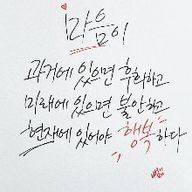 마음이
과거에 있으면 후회하고
미래에 있으면 불안하고
현재에 있어야 행복하다